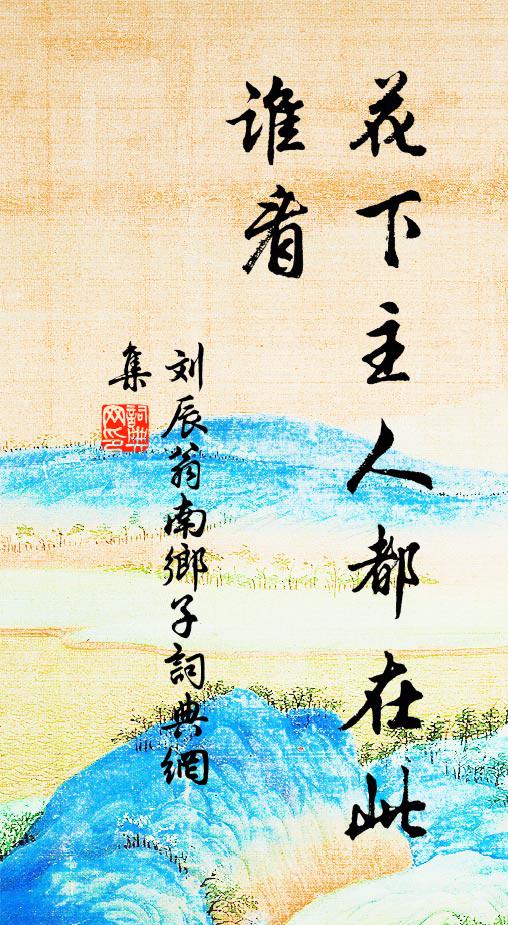 花下主人都在此
谁看
刘辰翁南鄉子詞典網
集
詞典
网印